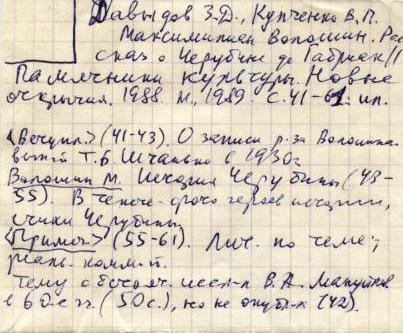 Давыдов З.Д., Купченко В.П.
Максимилиан Волошин. Рас
сказ о Черубине де Габриак //
Памятники культуры. Новые
открытия. 1988. М., 1989. С. 41-61. ил.
<Вступл.> (41-43). О записи р-за Волошина
Т.Б. Шанько в 1930г
Волошин М. История Черубины (43-
55). В тексте - фото героев истории,
стихи Черубины
<Примеч.> (55-61). Лит. по теме;
реальн. комм-й.
Тему обстоят. иссл-л В.А. Мануйлов
в 60-е гг (50 с.), но не опубл-л (42).